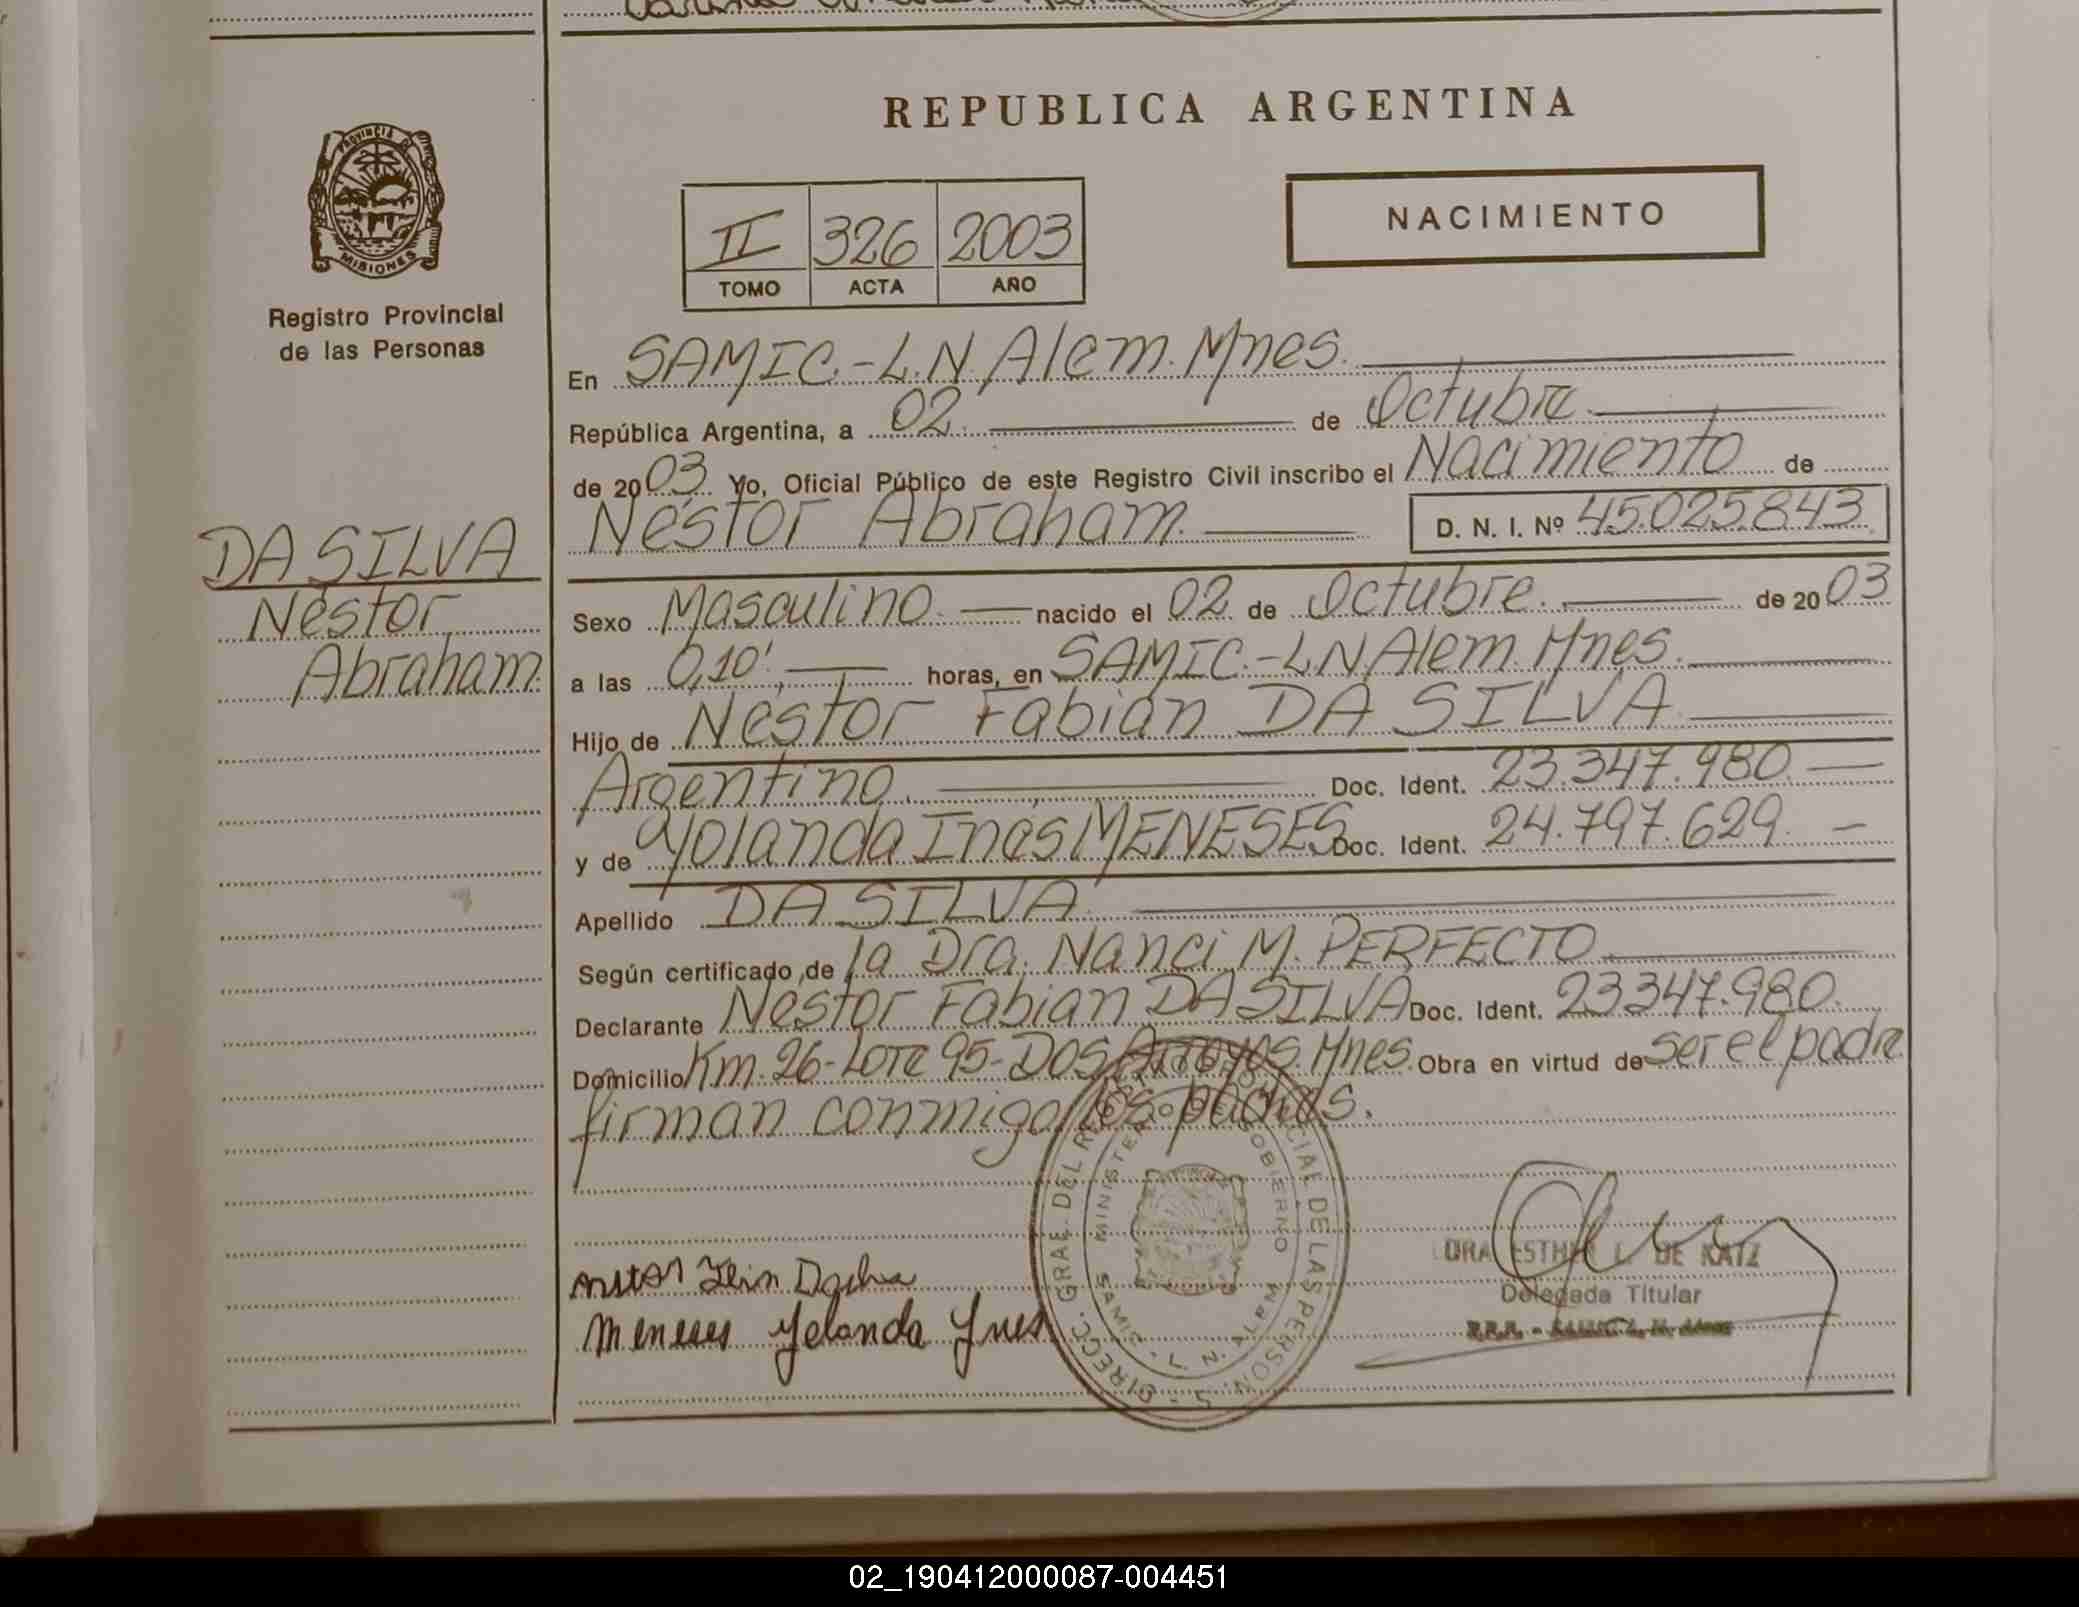 REPUBLICA ARGENTINA
PROVINCIA DE
MISIONES
Registro Provincial
de las Personas
DA SILVA
Néstor
Abraham.
II 326 2003
TOMO ACTA AÑO
NACIMIENTO
En SAMIC.-L.N.Alem.Mnes.
República Argentina, a 02. de Octubre.
de 2003. Yo, Oficial Público de este Registro Civil inscribo el Nacimiento de
Néstor Abraham. D. N. I. Nº 45.025.843.
Sexo Masculino. nacido el 02 de Octubre. de 2003
a las 0,10'. horas, en SAMIC.-L.N.Alem.Mnes.
Hijo de Néstor Fabián DA SILVA.
Argentino. Doc. Ident. 23.347.980.
y de Yolanda Inés MENESES Doc. Ident. 24.797.629.
Apellido DA SILVA.
Según certificado de la Dra. Nanci M. PERFECTO.
Declarante Néstor Fabián DA SILVA Doc. Ident. 23347.980.
Domicilio Km.26-Lote 95-Dos Arroyos.Mnes. Obra en virtud de ser el padre
firman conmigo los padres.
DIRECC. GRAL. DEL REG. PROVINCIAL DE LAS PERSONAS
MINISTERIO DE GOBIERNO
SAMIC - L. N. ALEM
DRA. ESTHER L. DE KATZ
Delegada Titular
Meneses Yolanda Ynes
02_190412000087-004451